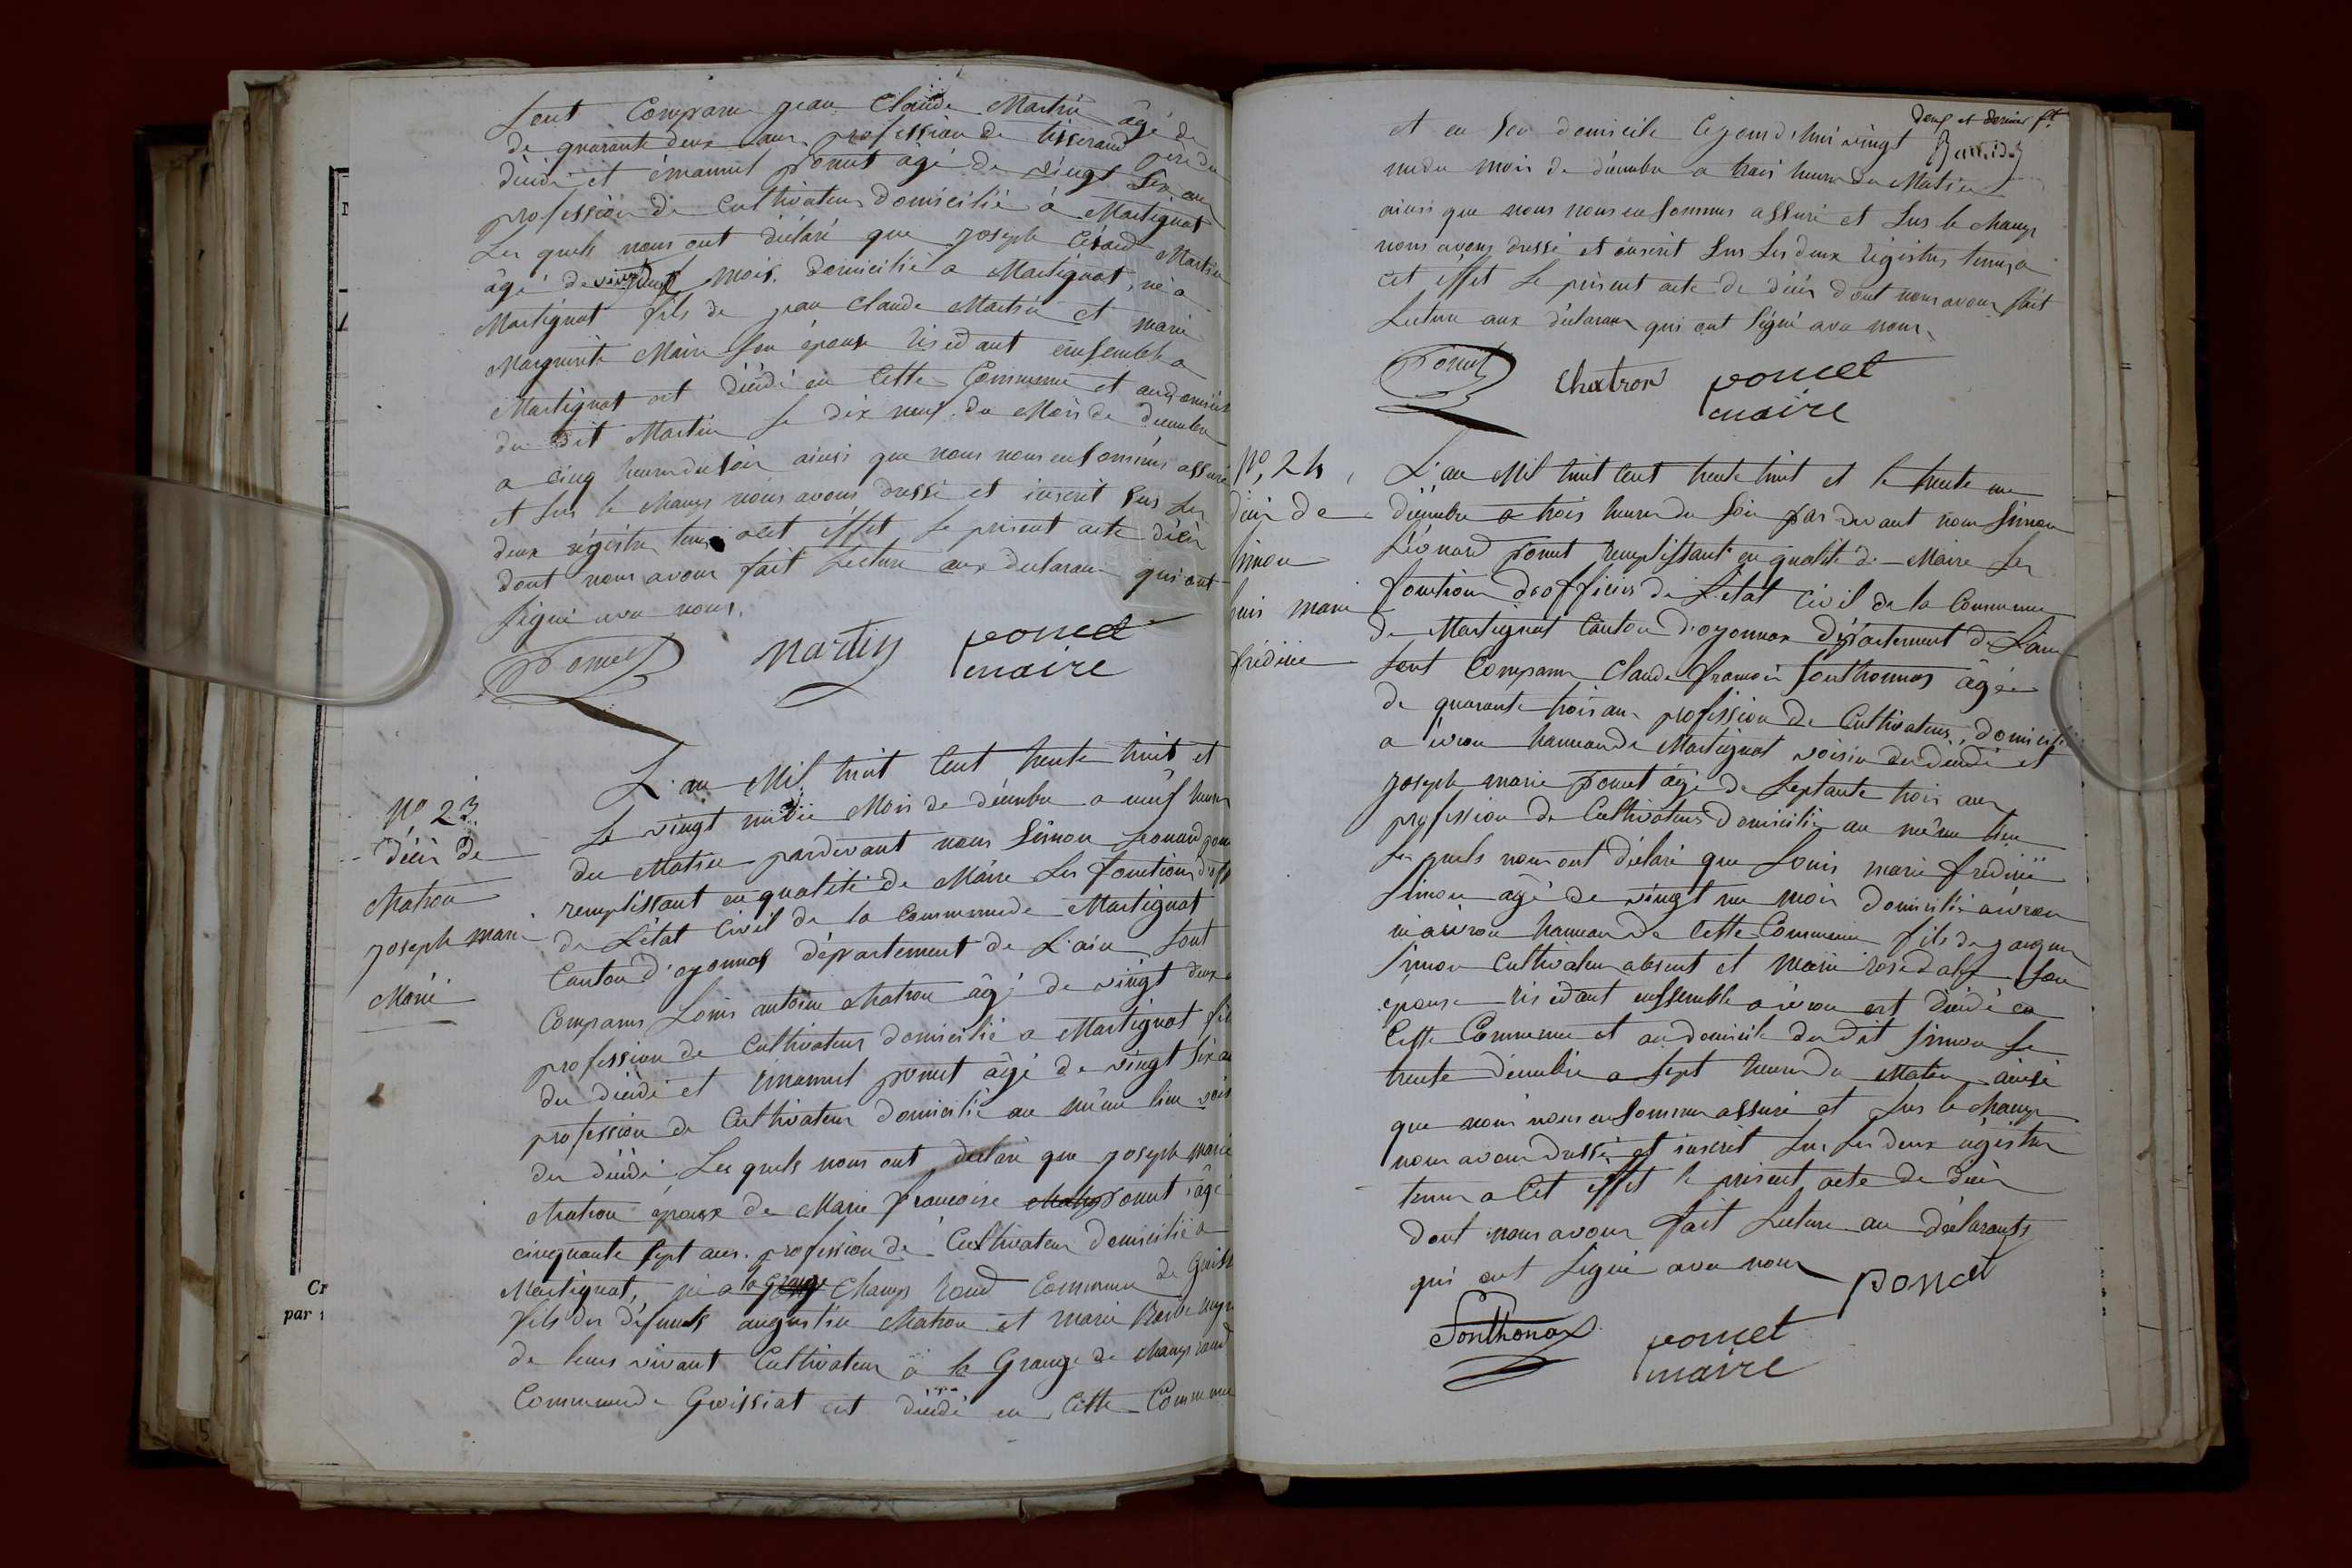 Sont Comparu jean Claude Martin âgé de
de quarante deux ans, profession de tisserand père du
décédé et émanuel poncet âgé de vingt six ans
profession de Cultivateur domicilié à Martignat
Les quels nous ont déclaré que joseph Martin
âgé de mois, domicilié a Martignat, né a
Martignat fils de jean Claude Martin et marie
Marguerite Maire son épouse résidant ensemble a
Martignat est décédé en Cette Commune et au domicile
du dit Martin le dix neuf du Mois de décembre
a cinq heures du soir ainsi que nous nous en sommes assuré
et sur le champ nous avons dressé et inscrit sur les
deux régistres tenus a cet éffet le présent acte décès
dont nous avons fait Lecture aux déclarans qui ont
signé avec nous.
Poncet Martin poncet
maire
N° 23.
décès de
Chatron
joseph marie
Marié
L'an Mil huit Cent trente huit et
le vingt un du Mois de décembre a neuf heures
du Matin pardevant nous Simon Léonard poncet
remplissant en qualité de Maire les fonctions d'off
de L'état Civil de la Commune de Martignat
Canton d'oyonnax département de L'ain Sont
Comparus Louis antoine Chatron âgé de vingt deux
profession de Cultivateur domicilié a Martignat fils
du décédé et émanuel poncet âgé de vingt six ans
profession de Cultivateur domicilié au même lieu voisin
du décédé Les quels nous ont déclaré que joseph marie
Chatron époux de Marie françoise poncet, âgé
cinquante sept ans. profession de Cultivateur domicilié a
Martignat, né a la Grange Champ rond Commune de Guiss
fils des défunts augustin Chatron et marie
de leurs vivant Cultivateur à la Grange de champ rond
Commune de Groissiat est décédé en Cette Commune
deux et dernier ft.
et en son domicile Cejourd'hui vingt
un du mois de décembre a trois heures du Matin
ainsi que nous nous en sommes assuré et sur le champ
nous avons dressé et inscrit sur les deux régistres tenus a
cet éffet le présent acte de décès dont nous avons fait
Lecture aux déclarans qui ont signé avec nous.
Poncet Chatron poncet
maire
N°, 24
décès de
Simon
Louis marie
frédéric
L'an Mil huit Cent trente huit et le trente un
décembre a trois heures du soir par devant nous Simon
Léonard Poncet remplissant en qualité de Maire les
fonctions d'officier de L'état Civil de la Commune
de Martignat Canton d'oyonnax Département de L'ain
Sont Comparus Claude françois Sonthonnax âgé
de quarante trois ans profession de Cultivateur, domicilié
a évron hameau de Martignat voisin du décédé et
joseph marie Poncet âgé de septante trois ans
profession de Cultivateur domicilié au même lieu
Les quels nous ont déclaré que Louis marie frédéric
Simon âgé de vingt un mois domicilié a évron
né a évron hameau de Cette Commune fils de jacques
Simon Cultivateur absent et Marie son
épouse résidant enssemble a évron est décédé en
Cette Commune et au domicile du dit Simon le
trente décembre a sept heures du Matin ainsi
que nous nous en sommes assuré et sur le champ
nous avons dressé et inscrit sur les deux régistres
tenus a Cet effet le présent acte de décès
dont nous avons fait Lecture au déclarants
qui ont signé avec nous poncet
Sonthonax poncet
maire
Cr
par